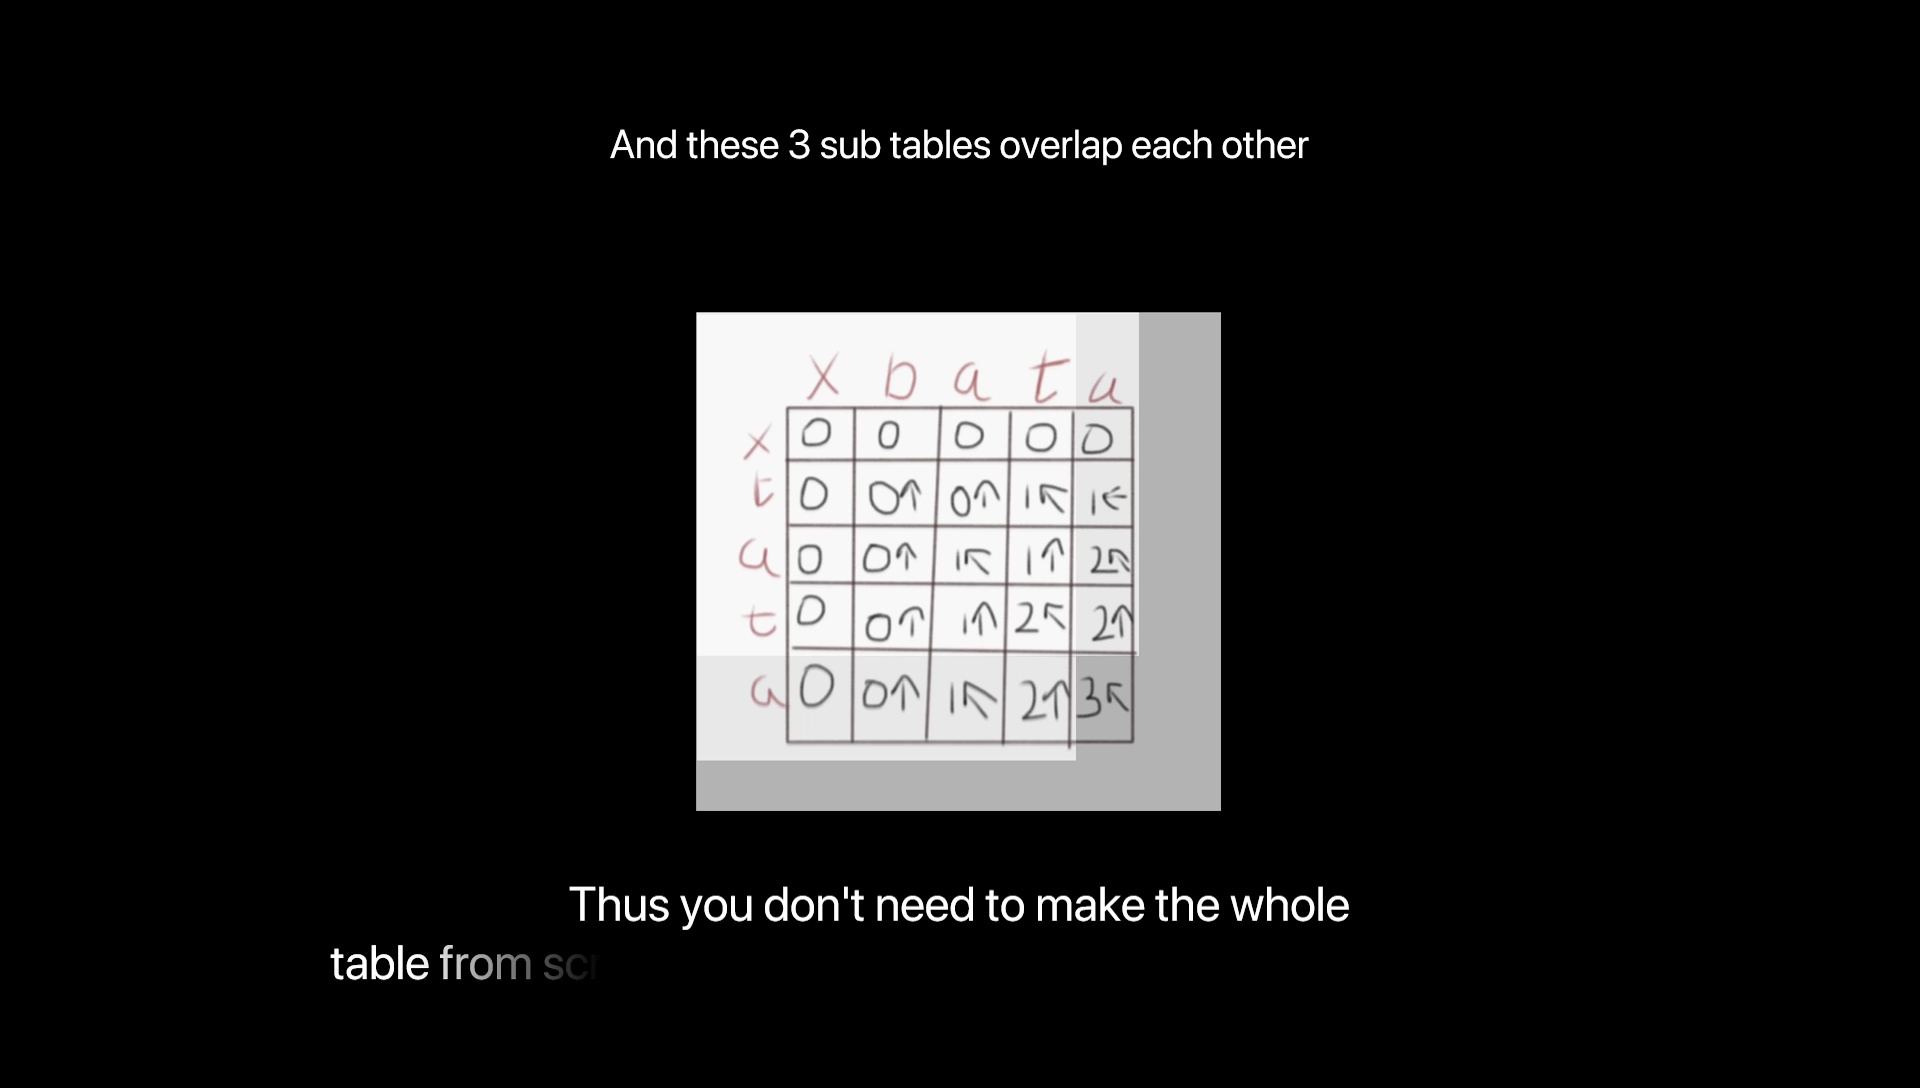 And these 3 sub tables overlap each other
x b a t a
x 0 0 0 0 0
t 0 0↑ 0↑ 1↖ 1←
a 0 0↑ 1↖ 1↑ 2↖
t 0 0↑ 1↑ 2↖ 2↑
a 0 0↑ 1↖ 2↑ 3↖
Thus you don't need to make the whole
table from scr